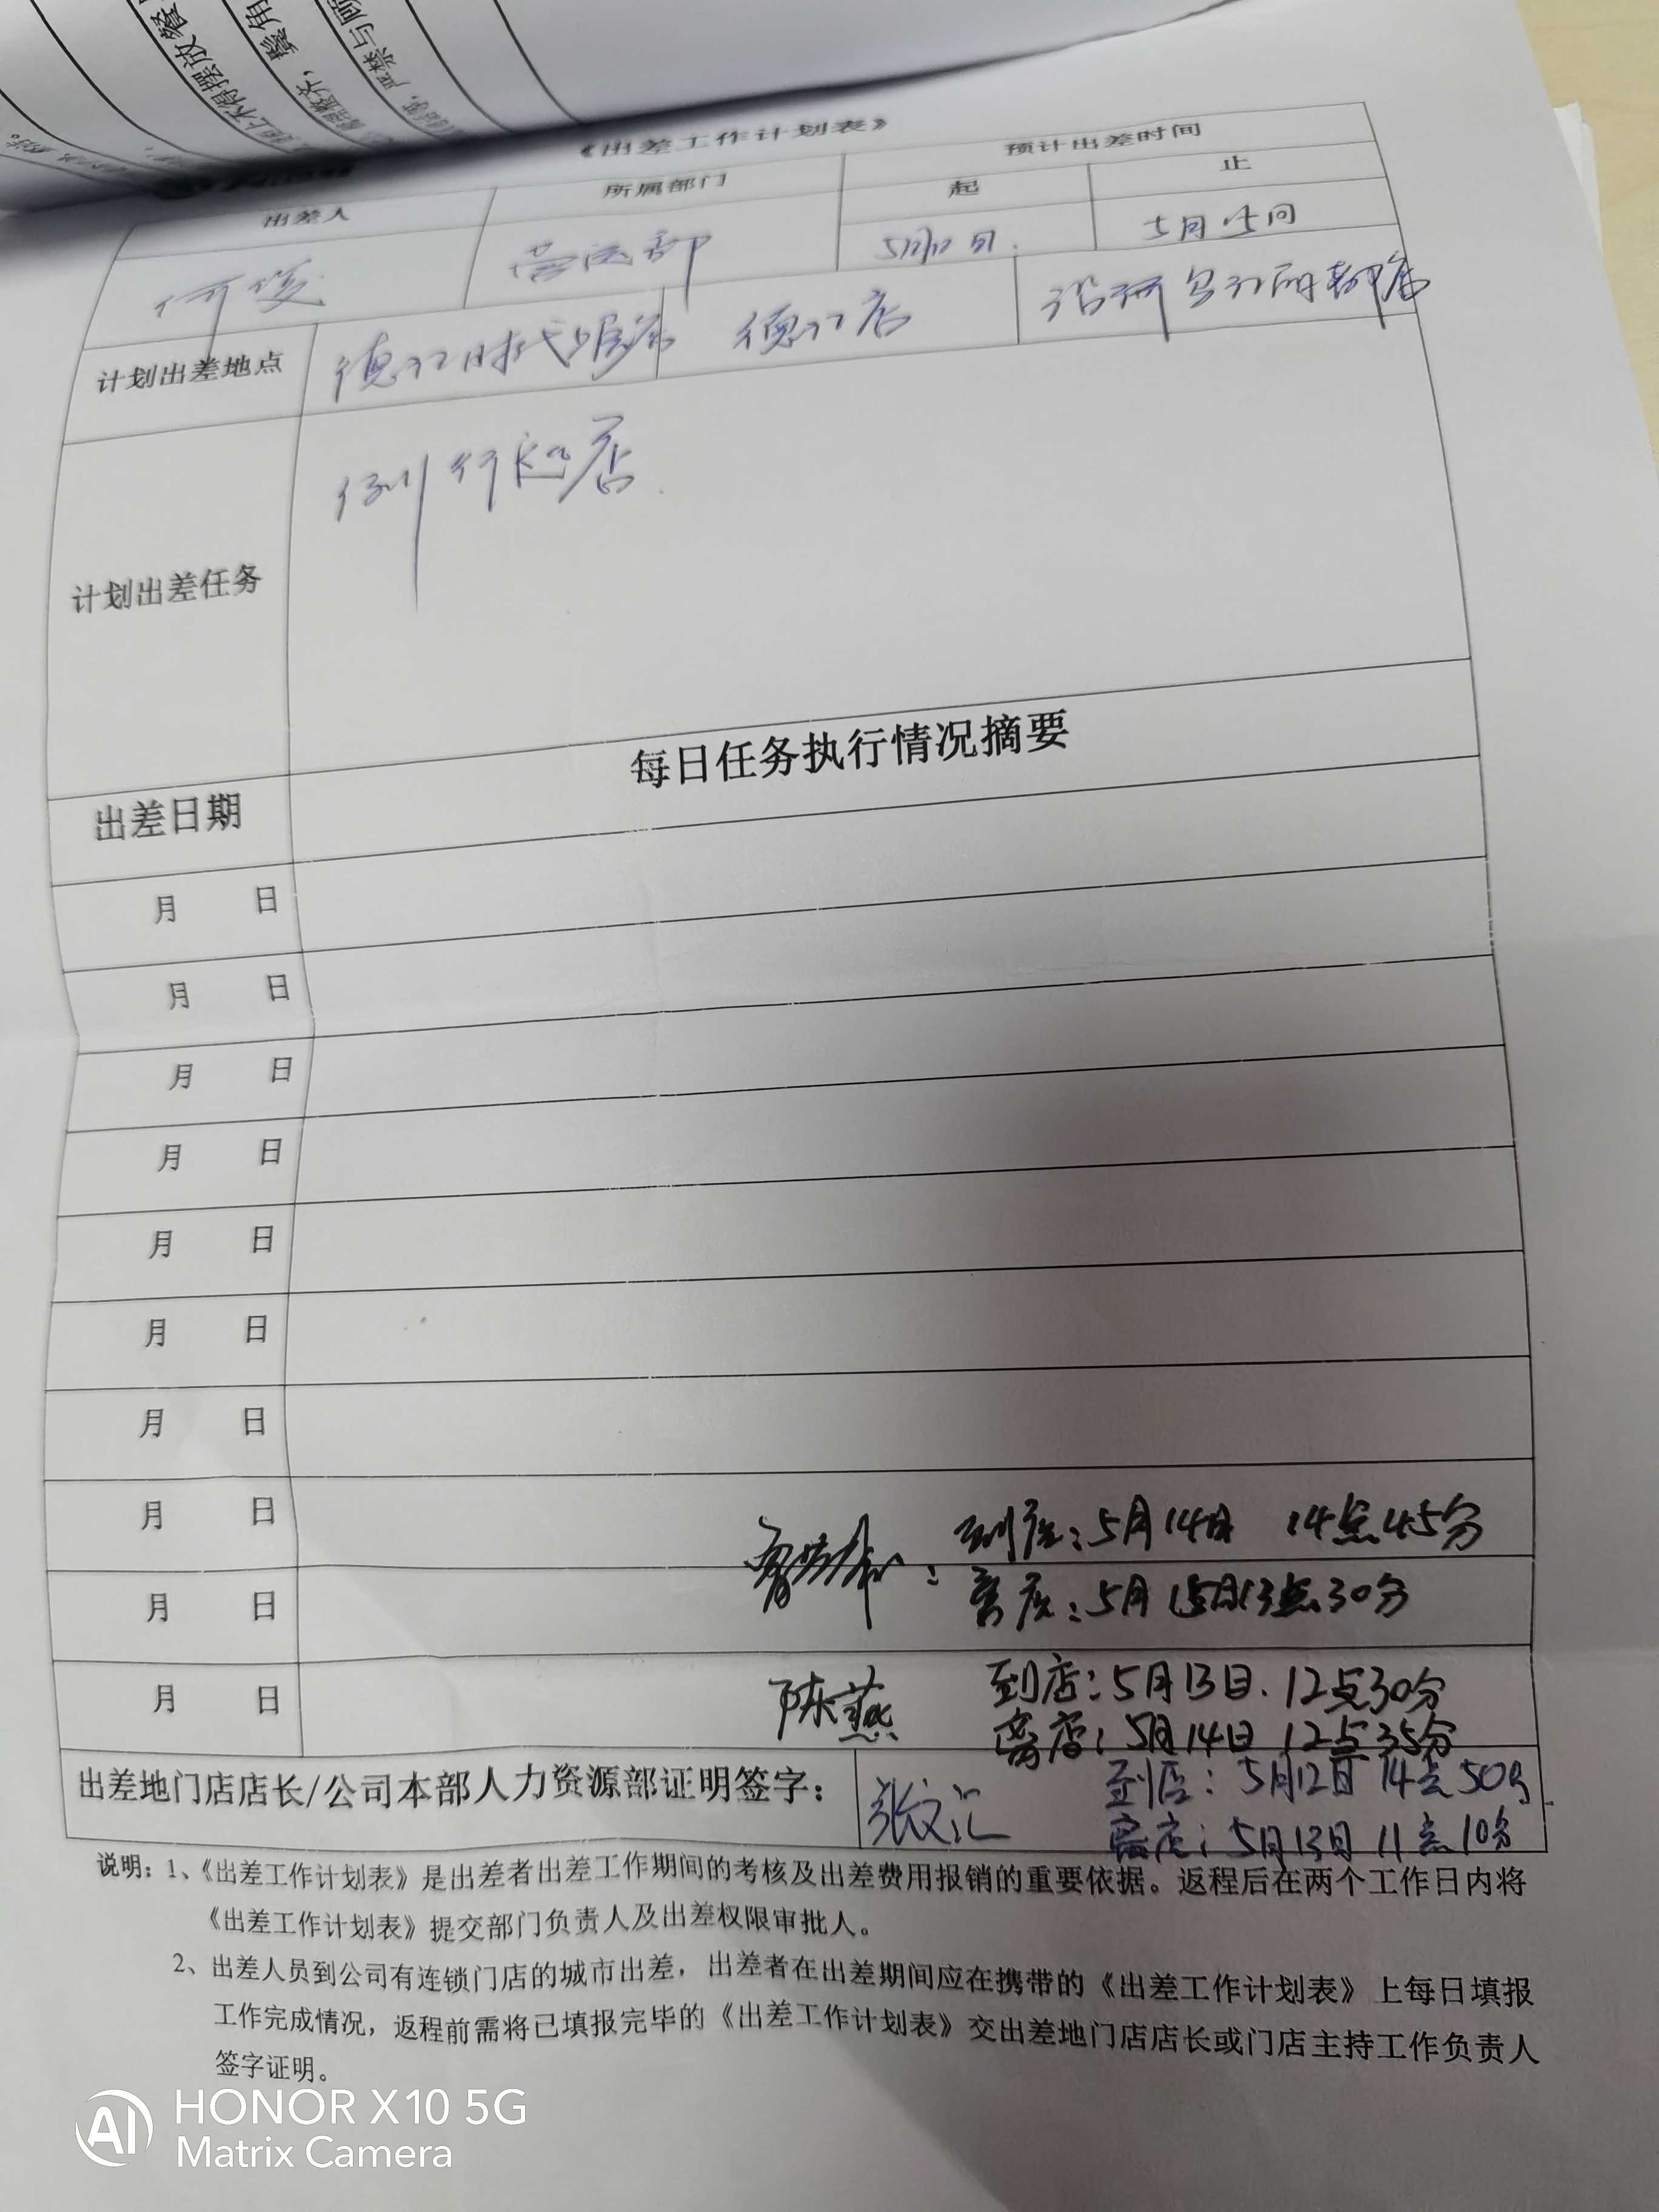 《出差工作计划表》
出差人 所属部门 预计出差时间
起 止
何俊 营运部 5月12日. 5月15日
计划出差地点 德江时代 店 德江店 沿河 丽都店
计划出差任务 例行巡店
出差日期 每日任务执行情况摘要
月 日
月 日
月 日
月 日
月 日
月 日
月 日
月 日
到店:5月14日 14点45分
月 日
离店:5月15日13点30分
月 日
陈燕 到店:5月13日.12点30分
离店:5月14日12点35分
出差地门店店长/公司本部人力资源部证明签字: 张文汇 到店:5月12日14点50分
离店:5月13日11点10分
说明:1、《出差工作计划表》是出差者出差工作期间的考核及出差费用报销的重要依据。返程后在两个工作日内将
《出差工作计划表》提交部门负责人及出差权限审批人。
2、出差人员到公司有连锁门店的城市出差,出差者在出差期间应在携带的《出差工作计划表》上每日填报
工作完成情况,返程前需将已填报完毕的《出差工作计划表》交出差地门店店长或门店主持工作负责人
签字证明。
AI HONOR X10 5G
Matrix Camera